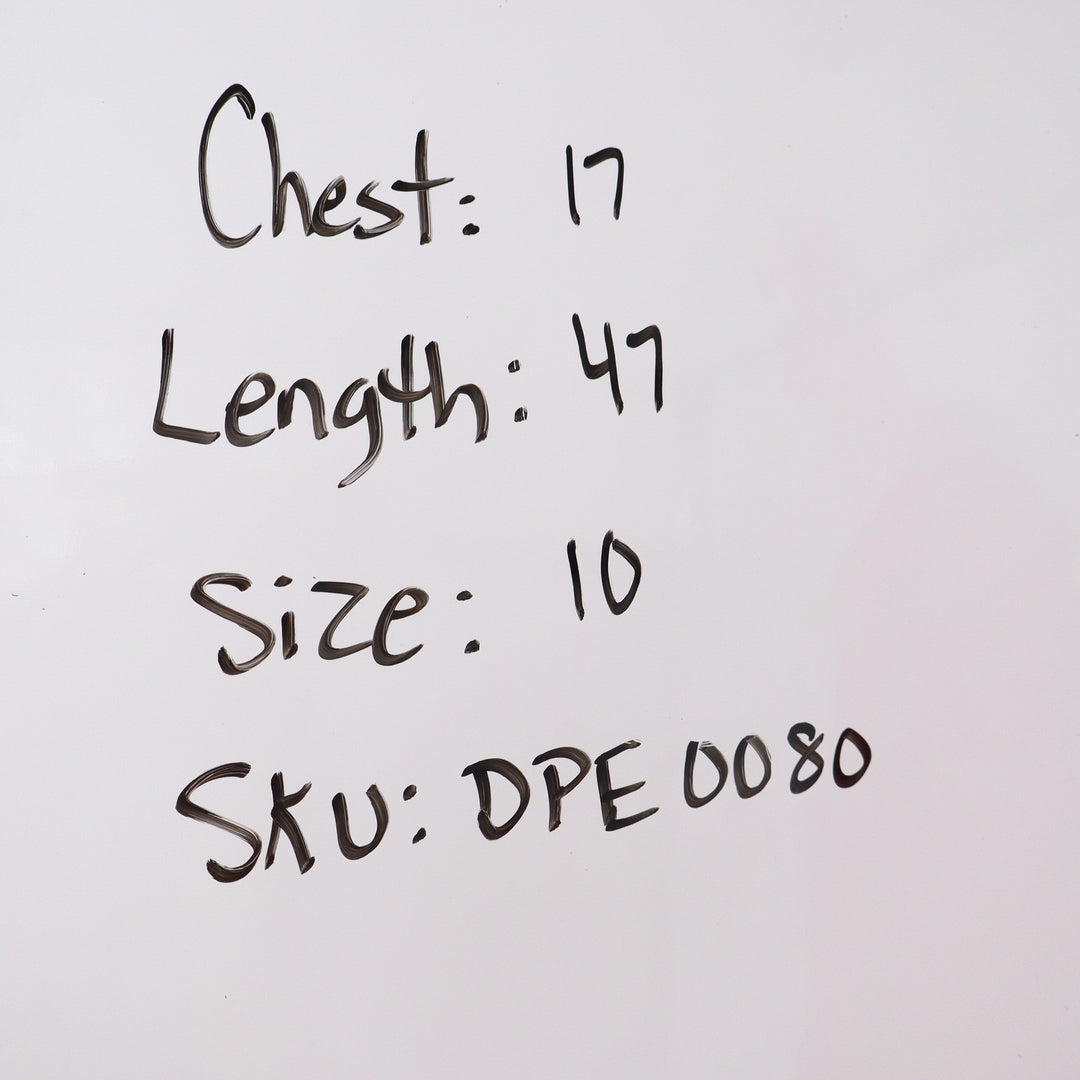 Chest: 17
Length: 47
Size: 10
SKU: DPE 0080